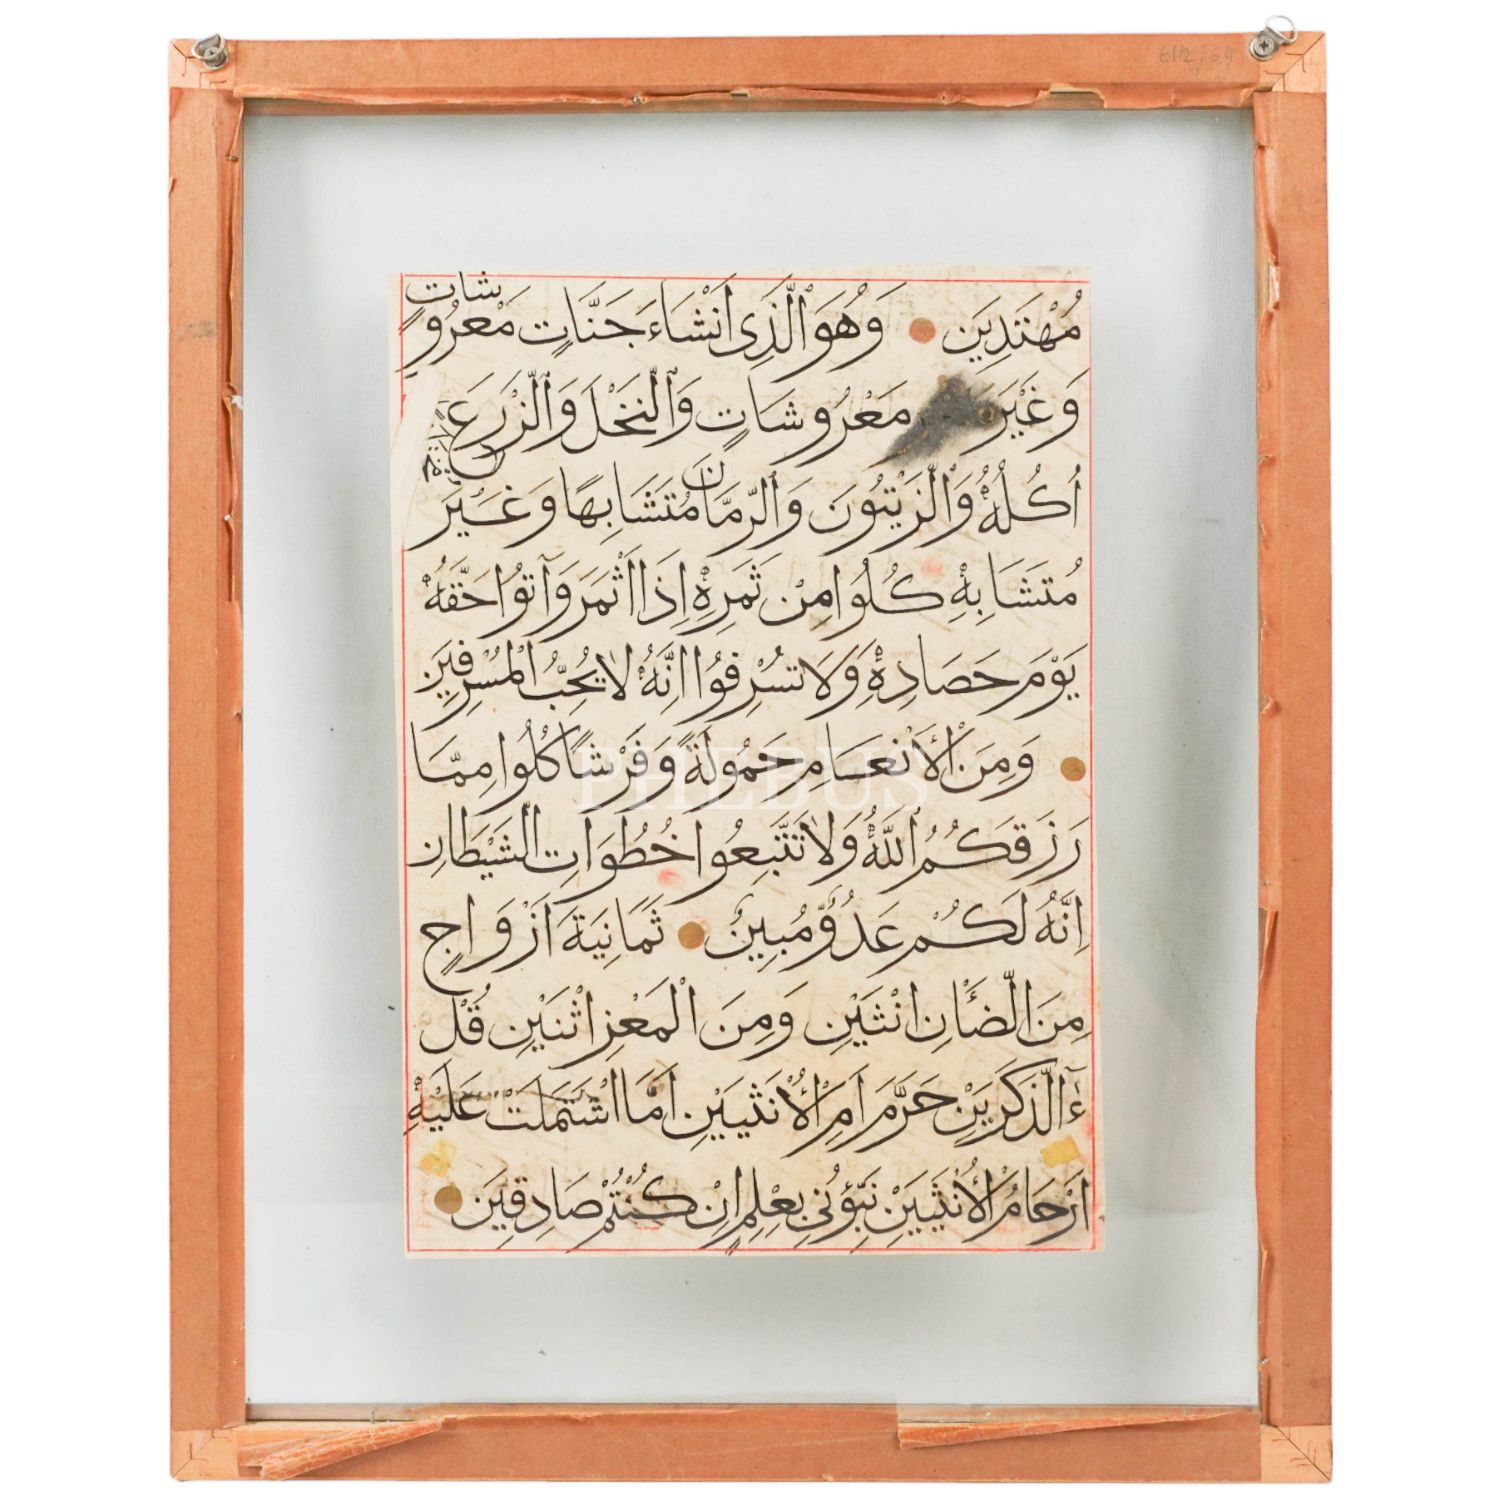 6112/64
مُهْتَدِينَ وَهُوَ ٱلَّذِى اَنْشَاءَ جَنَّاتٍ مَعْرُوشَاتٍ
وَغَيْرَ مَعْرُوشَاتٍ وَٱلنَّخْلَ وَٱلزَّرْعَ
اُكُلُهُ وَٱلزَّيْتُونَ وَٱلرُّمَّانَ مُتَشَابِهًا وَغَيْرَ
مُتَشَابِهٍ كُلُوا مِنْ ثَمَرِهِ اِذَا اَثْمَرَ وَآتُوا حَقَّهُ
يَوْمَ حَصَادِهِ وَلَا تُسْرِفُوا اِنَّهُ لَا يُحِبُّ الْمُسْرِفِينَ
وَمِنَ الْأَنْعَامِ حَمُولَةً وَفَرْشًا كُلُوا مِمَّا
رَزَقَكُمُ ٱللَّهُ وَلَا تَتَّبِعُوا خُطُوَاتِ الشَّيْطَانِ
اِنَّهُ لَكُمْ عَدُوٌّ مُبِينٌ ثَمَانِيَةَ اَزْوَاجٍ
مِنَ الضَّأْنِ اثْنَيْنِ وَمِنَ الْمَعْزِ اثْنَيْنِ قُلْ
ءٓالذَّكَرَيْنِ حَرَّمَ اَمِ الْأُنْثَيَيْنِ اَمَّا اشْتَمَلَتْ عَلَيْهِ
اَرْحَامُ الْأُنْثَيَيْنِ نَبِّؤُنِى بِعِلْمٍ اِنْ كُنْتُمْ صَادِقِينَ
PHEBUS